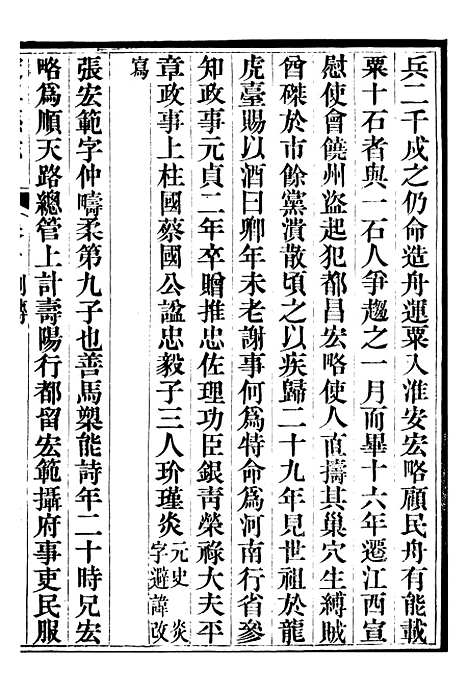 兵二千戍之仍命造舟運粟入淮安宏略顧民舟有能載
粟十石者與一石人爭趨之一月而畢十六年遷江西宣
慰使會饒州盜起犯都昌宏略使人直擣其巢穴生縛賊
酋磔於市餘黨潰散頃之以疾歸二十九年見世祖於龍
虎臺賜以酒曰卿年未老謝事何爲特命爲河南行省參
知政事元貞二年卒贈推忠佐理功臣銀青榮祿大夫平
章政事上柱國蔡國公諡忠毅子三人玠瑾炎元史炎字避諱改
寫
張宏範字仲疇柔第九子也善馬槊能詩年二十時兄宏
略爲順天路總管上計壽陽行都留宏範攝府事吏民服